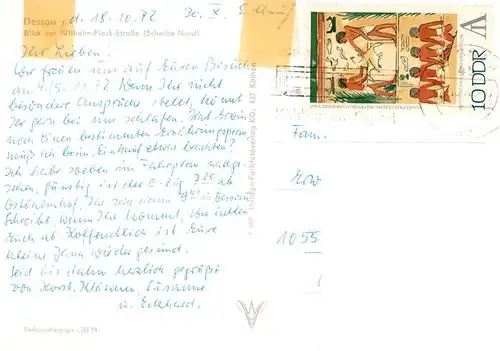 Dessau, d. 18.10.72
Blick zur Wilhelm-Pieck-Straße (Scheibe Nord)
Ihr Lieben!
Wir freuen uns auf Euren Besuch
am 4./5.11.72 Wenn Ihr nicht
besondere Ansprüche stellt, könnt
Ihr gern bei uns schlafen. Hat
noch einen bestimmten Ernährungsplan
muß ich beim Einkauf etwas beachten?
Ich habe soeben im Fahrplan nachge-
sehen, günstig ist der E-Zug 7.25 ab
Ostbahnhof. Ihr seid dann 9.41 in Dessau
Schreibt wenn Ihr kommt, wir holen
Euch ab Hoffentlich ist Eure
kleine Jana wieder gesund.
Seid bis dahin herzlich gegrüßt
von Horst, Klärchen, Susanne
u. Eckhard.
Verkaufspreis
30. X.
10 DDR
Fam.
1055